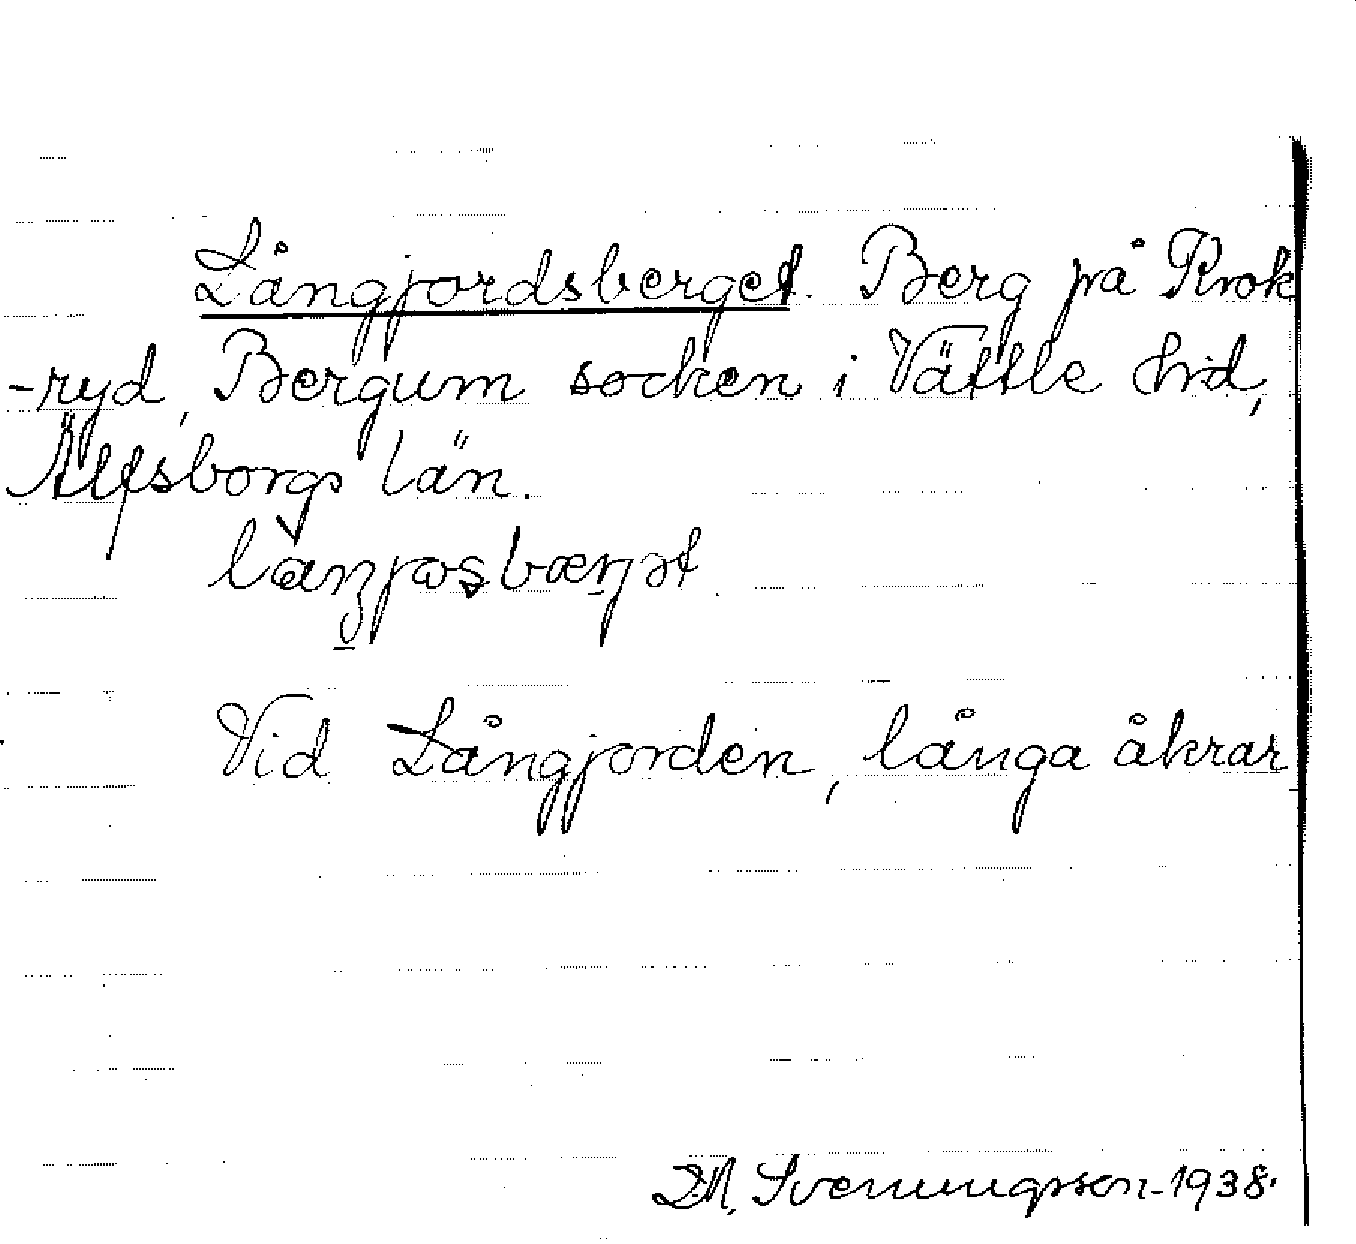 Långjordsberget. Berg på Krok
-ryd, Bergum socken i Vättle hrd,
Älfsborgs län.
Vid Långjorden, långa åkrar
Svenningsson - 1938.